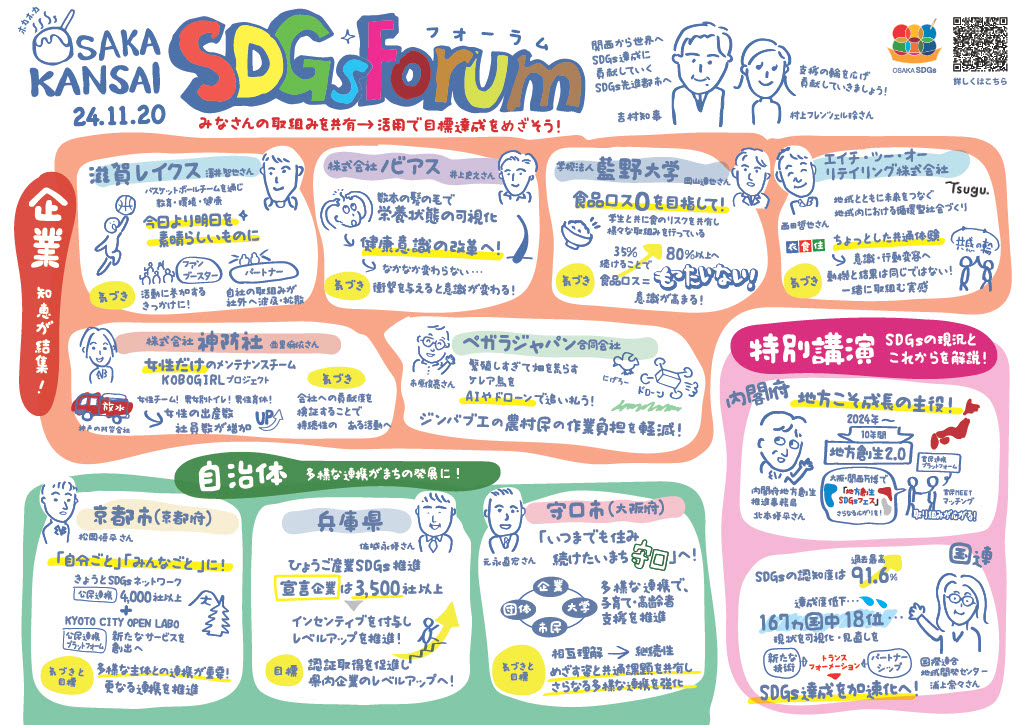 ポカポカ
OSAKA
KANSAI
24.11.20
SDGsForum
フォーラム
みなさんの取組みを共有→活用で目標達成をめざそう!
関西から世界へ
SDGs達成に
貢献していく
SDGs先進都市へ
吉村知事
支援の輪を広げ
貢献していきましょう!
村上フレンツェル玲さん
OSAKA SDGs
詳しくはこちら
企業
知恵が結集!
滋賀レイクス 澤井智也さん
バスケットボールチームを通じ
教育・環境・健康
今日より明日を
素晴らしいものに
ファン
ブースター
パートナー
気づき
活動に参加する
きっかけに!
自社の取組みが
社外へ波及・拡散
株式会社 ノビアス 井上史えさん
数本の髪の毛で
栄養状態の可視化
健康意識の改革へ!
なかなか変わらない…
気づき
衝撃を与えると意識が変わる!
学校法人 藍野大学
岡山達也さん
食品ロス0を目指して!
学生と共に食のリスクを共有し
様々な取組みを行っている
35%
80%以上へ
続けることで
気づき
食品ロス=もったいない!
意識が高まる!
エイチ・ツー・オー
リテイリング株式会社
Tsugu.
地域とともに未来をつなぐ
地域内における循環型社会づくり
西田哲也さん
衣食住
ちょっとした共通体験
意識・行動変容へ
共感の輪
気づき
動機と結果は同じではない!
一緒に取組む実感
株式会社 神防社
女性だけのメンテナンスチーム
KOBOGIRLプロジェクト
女性チーム! 男女別トイレ! 男性育休!
放水
神戸の防災会社
女性の出産数
社員数が増加
UP
気づき
会社への貢献度を
検証することで
持続性の ある活動へ
ペガラジャパン合同会社
市原信孝さん
繁殖しすぎて畑を荒らす
ケレア鳥を
AIやドローンで追い払う!
にげろ〜
ドローン
ジンバブエの農村民の作業負担を軽減!
特別講演 SDGsの現況と
これからを解説!
内閣府 地方こそ成長の主役!
2024年〜
10年間
地方創生2.0
官民連携
プラットフォーム
大阪・関西万博で
「地方創生
SDGsフェス」
さらなる広がりを!
官民MEET
マッチング
取り組みが広がる!
内閣府地方創生
推進事務局
北本優平さん
国連
過去最高
SDGsの認知度は91.6%
達成度低下…
167ヵ国中18位…
現状を可視化・見直しを
新たな
技術
トランス
フォーメーション
パートナー
シップ
SDGs達成を加速化へ!
国際連合
地域開発センター
浦上奈々さん
自治体 多様な連携がまちの発展に!
京都市(京都府)
松岡悟平さん
「自分ごと」「みんなごと」に!
きょうとSDGsネットワーク
公民連携 4,000社以上
+
KYOTO CITY OPEN LABO
公民連携
プラットフォーム
新たなサービスを
創出へ
気づきと
目標
多様な主体との連携が重要!
更なる連携を推進
兵庫県
佐城永悟さん
ひょうご産業SDGs推進
宣言企業は3,500社以上
インセンティブを付与し
レベルアップを推進!
目標
認証取得を促進し
県内企業のレベルアップへ!
守口市(大阪府)
元永直宏さん
「いつまでも住み
続けたいまち守口」へ!
企業
団体
大学
市民
多様な連携で、
子育て・高齢者
支援を推進
相互理解→継続性
気づきと
目標
めざす姿と共通課題を共有し
さらなる多様な連携を強化